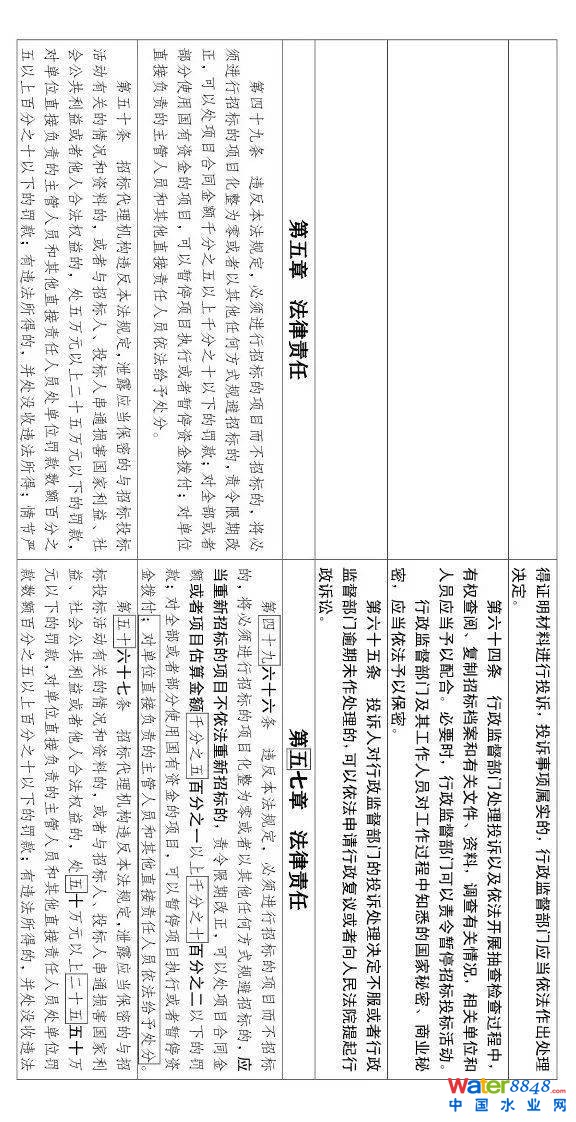 得证明材料进行投诉，投诉事项属实的，行政监督部门应当依法作出处理
决定。
第六十四条　行政监督部门处理投诉以及依法开展抽查检查过程中，
有权查阅、复制招标档案和有关文件、资料，调查有关情况，相关单位和
人员应当予以配合。必要时，行政监督部门可以责令暂停招标投标活动。
行政监督部门及其工作人员对工作过程中知悉的国家秘密、商业秘
密，应当依法予以保密。
第六十五条　投诉人对行政监督部门的投诉处理决定不服或者行政
监督部门逾期未作处理的，可以依法申请行政复议或者向人民法院提起行
政诉讼。
第五章　法律责任
第五七章　法律责任
第四十九条　违反本法规定，必须进行招标的项目而不招标的，将必
须进行招标的项目化整为零或者以其他任何方式规避招标的，责令限期改
正，可以处项目合同金额千分之五以上千分之十以下的罚款；对全部或者
部分使用国有资金的项目，可以暂停项目执行或者暂停资金拨付；对单位
直接负责的主管人员和其他直接责任人员依法给予处分。
第四十九六十六条　违反本法规定，必须进行招标的项目而不招标
的，将必须进行招标的项目化整为零或者以其他任何方式规避招标的，应
当重新招标的项目不依法重新招标的，责令限期改正，可以处项目合同金
额或者项目估算金额千分之五百分之一以上千分之十百分之二以下的罚
款；对全部或者部分使用国有资金的项目，可以暂停项目执行或者暂停资
金拨付；对单位直接负责的主管人员和其他直接责任人员依法给予处分。
第五十条　招标代理机构违反本法规定，泄露应当保密的与招标投标
活动有关的情况和资料的，或者与招标人、投标人串通损害国家利益、社
会公共利益或者他人合法权益的，处五万元以上二十五万元以下的罚款，
对单位直接负责的主管人员和其他直接责任人员处单位罚款数额百分之
五以上百分之十以下的罚款；有违法所得的，并处没收违法所得；情节严
第五十六十七条　招标代理机构违反本法规定，泄露应当保密的与招
标投标活动有关的情况和资料的，或者与招标人、投标人串通损害国家利
益、社会公共利益或者他人合法权益的，处五十万元以上二十五五十万
元以下的罚款，对单位直接负责的主管人员和其他直接责任人员处单位罚
款数额百分之五以上百分之十以下的罚款；有违法所得的，并处没收违法
Water8848.com
中国水业网